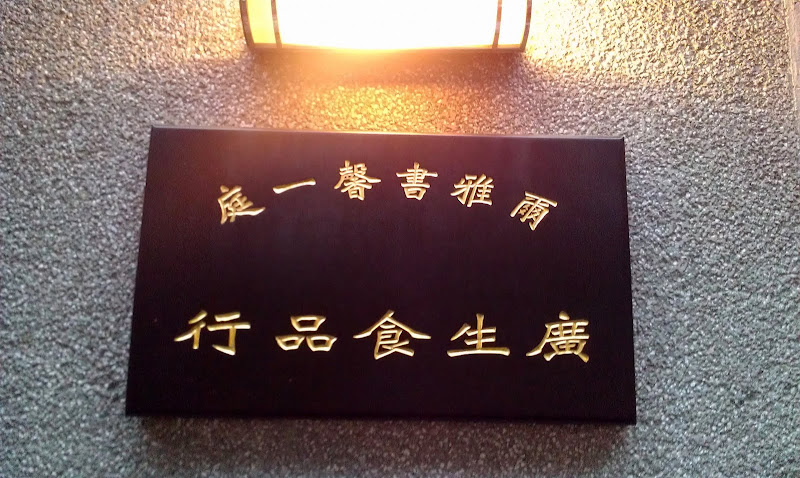 爾雅書馨一庭
廣生食品行